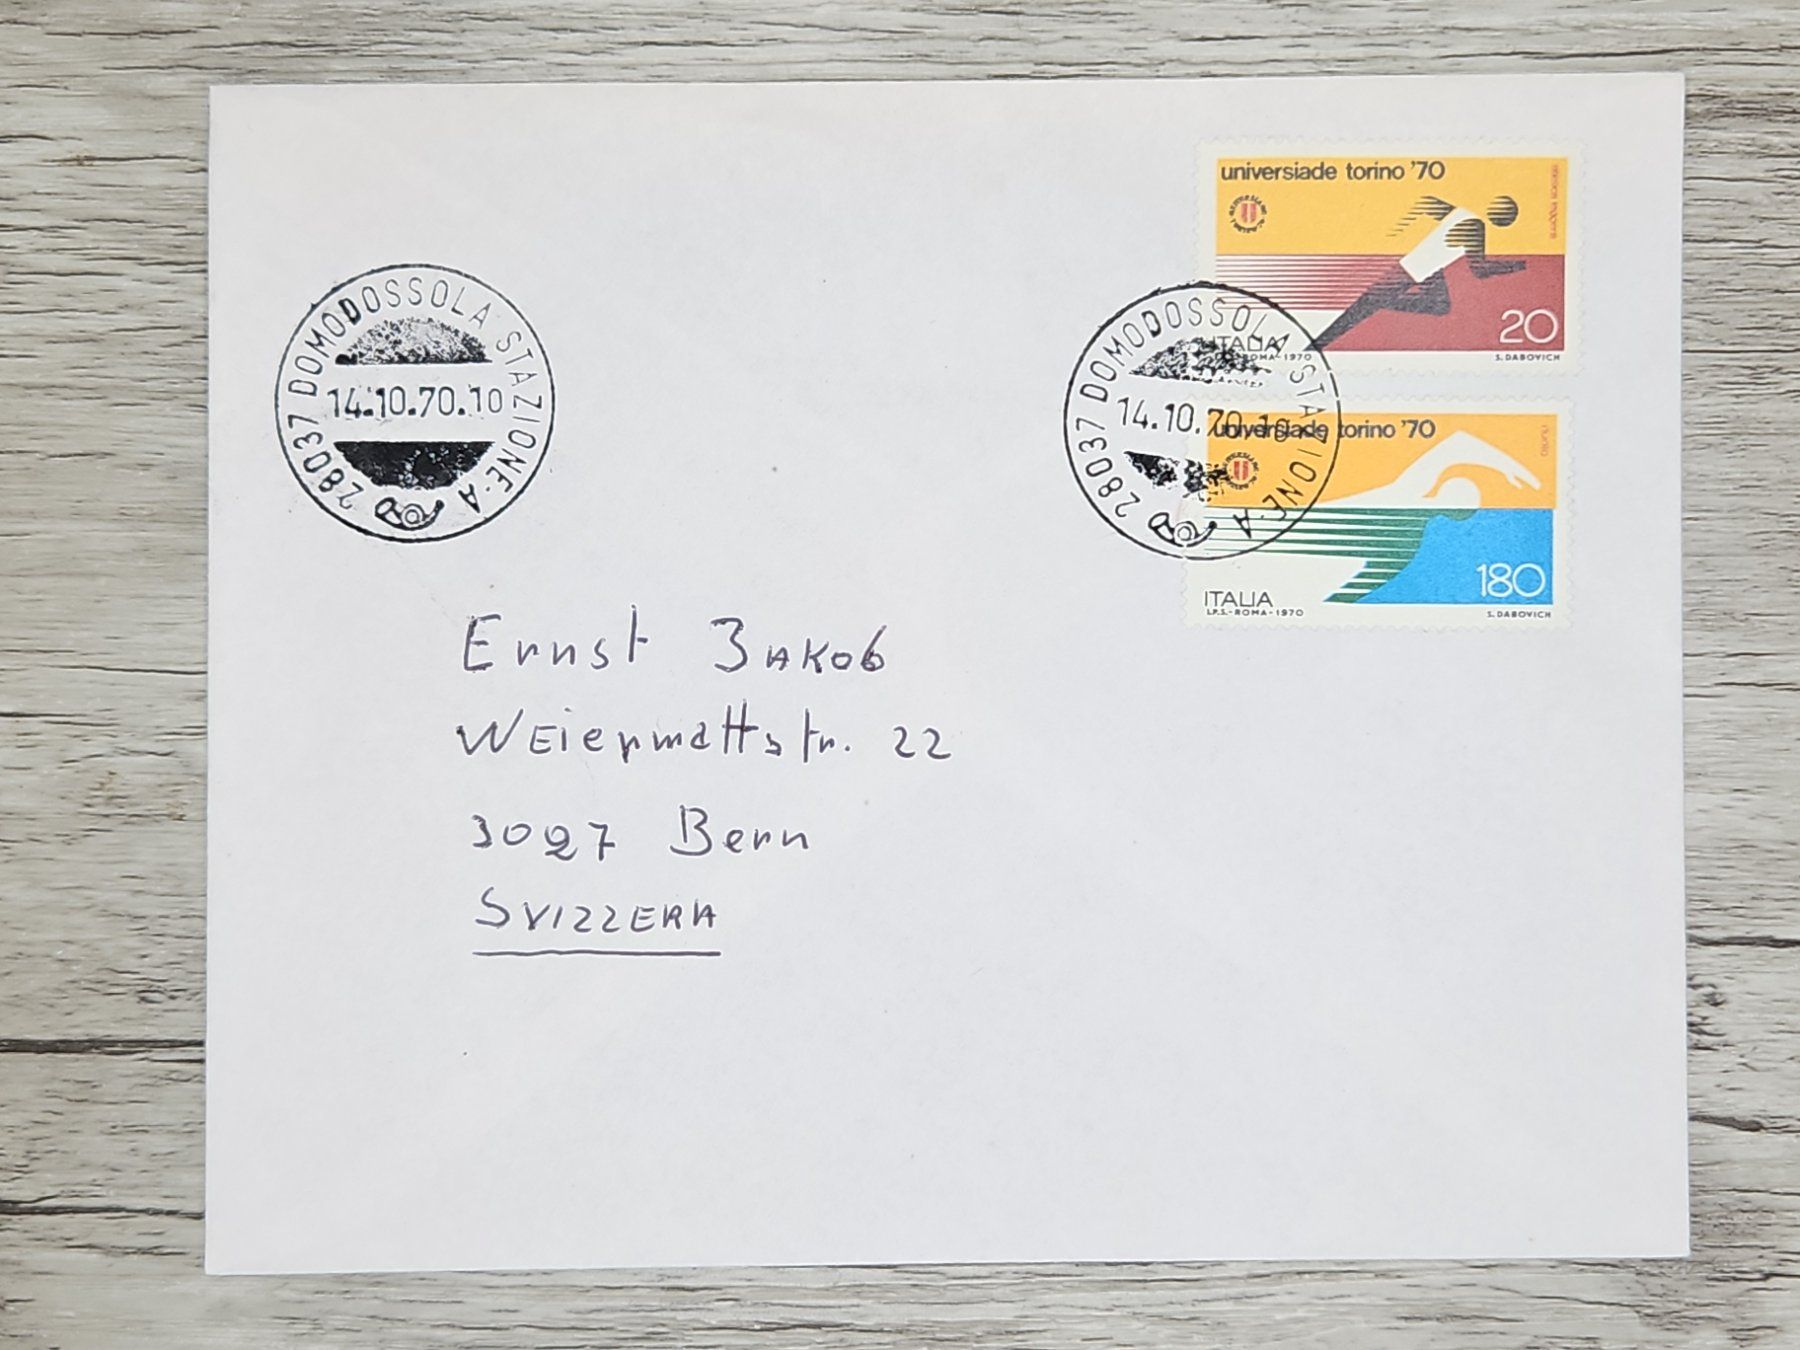 universiade torino '70
20
ITALIA
I.P.S.-ROMA-1970
S. DABOVICH
28037 DOMODOSSOLA STAZIONE·A
14.10.70.10
28037 DOMODOSSOLA STAZIONE·A
14.10.70.10
universiade torino '70
nuoto
180
ITALIA
I.P.S.-ROMA-1970
S. DABOVICH
Ernst Jakob
Weiermattstr. 22
3027 Bern
SVIZZERA